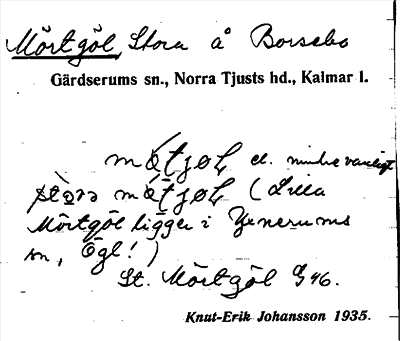 Mörtgöl, Stora å Borsebo
Gärdserums sn., Norra Tjusts hd., Kalmar l.
el. mindre vanligt
(Lilla
Mörtgöl ligger i Yxnerums
sn, Ögl!)
St. Mörtgöl G 46.
Knut-Erik Johansson 1935.